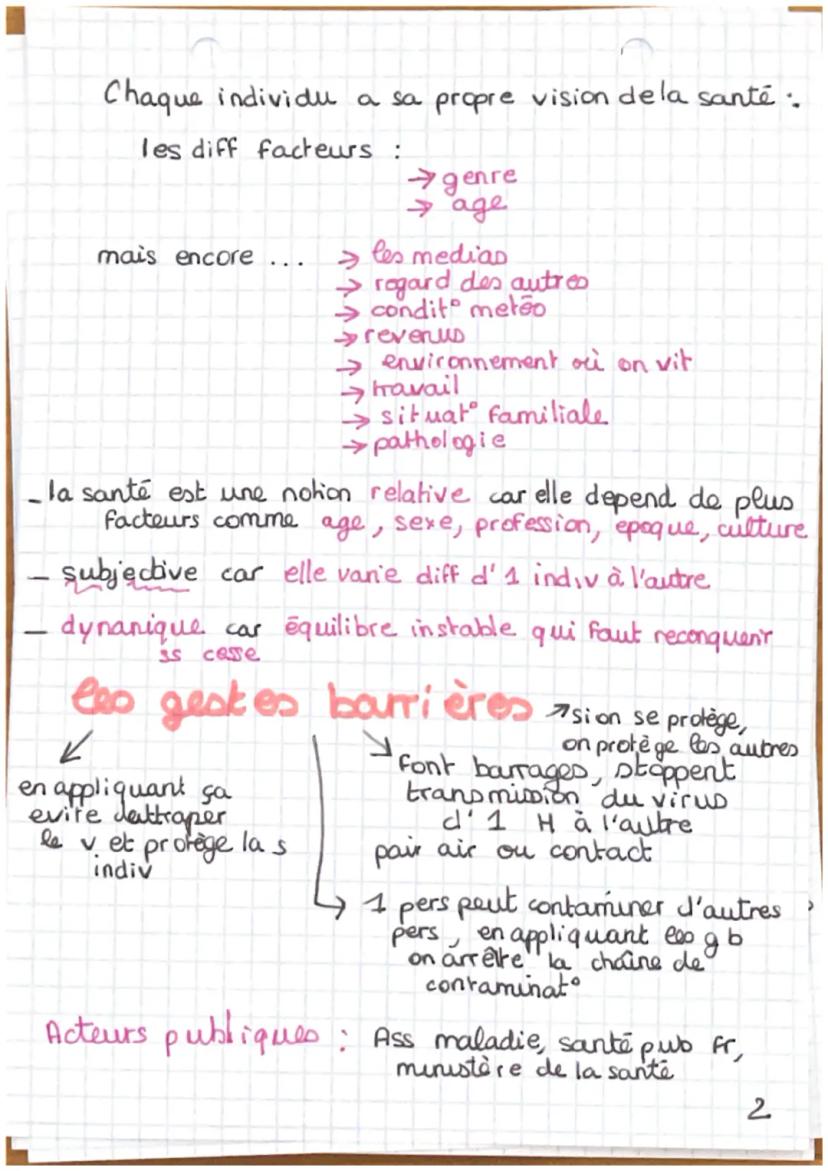 Chaque individu a sa propre vision de la santé :
les diff facteurs :
→ genre
→ age
mais encore ...
→ les medias
→ regard des autres
→ condit° metéo
→ revenus
→ environnement où on vit
→ travail
→ situat° familiale
→ pathologie
- la santé est une notion relative car elle depend de plus
facteurs comme age, sexe, profession, epoque, culture
- subjective car elle varie diff d'1 indiv à l'autre
- dynanique car équilibre instable qui faut reconquerir
ss cesse
les gestes barrières
↗ si on se protège,
on protège les autres
en appliquant ça
evite d'attraper
le v et protège la s
indiv
font barrages, stoppent
transmission du virus
d'1 H à l'autre
pair air ou contact
→ 1 pers peut contaminer d'autres
pers, en appliquant les g b
on arrête la chaîne de
contaminat°
Acteurs publiques : Ass maladie, santé pub Fr,
ministère de la santé
2